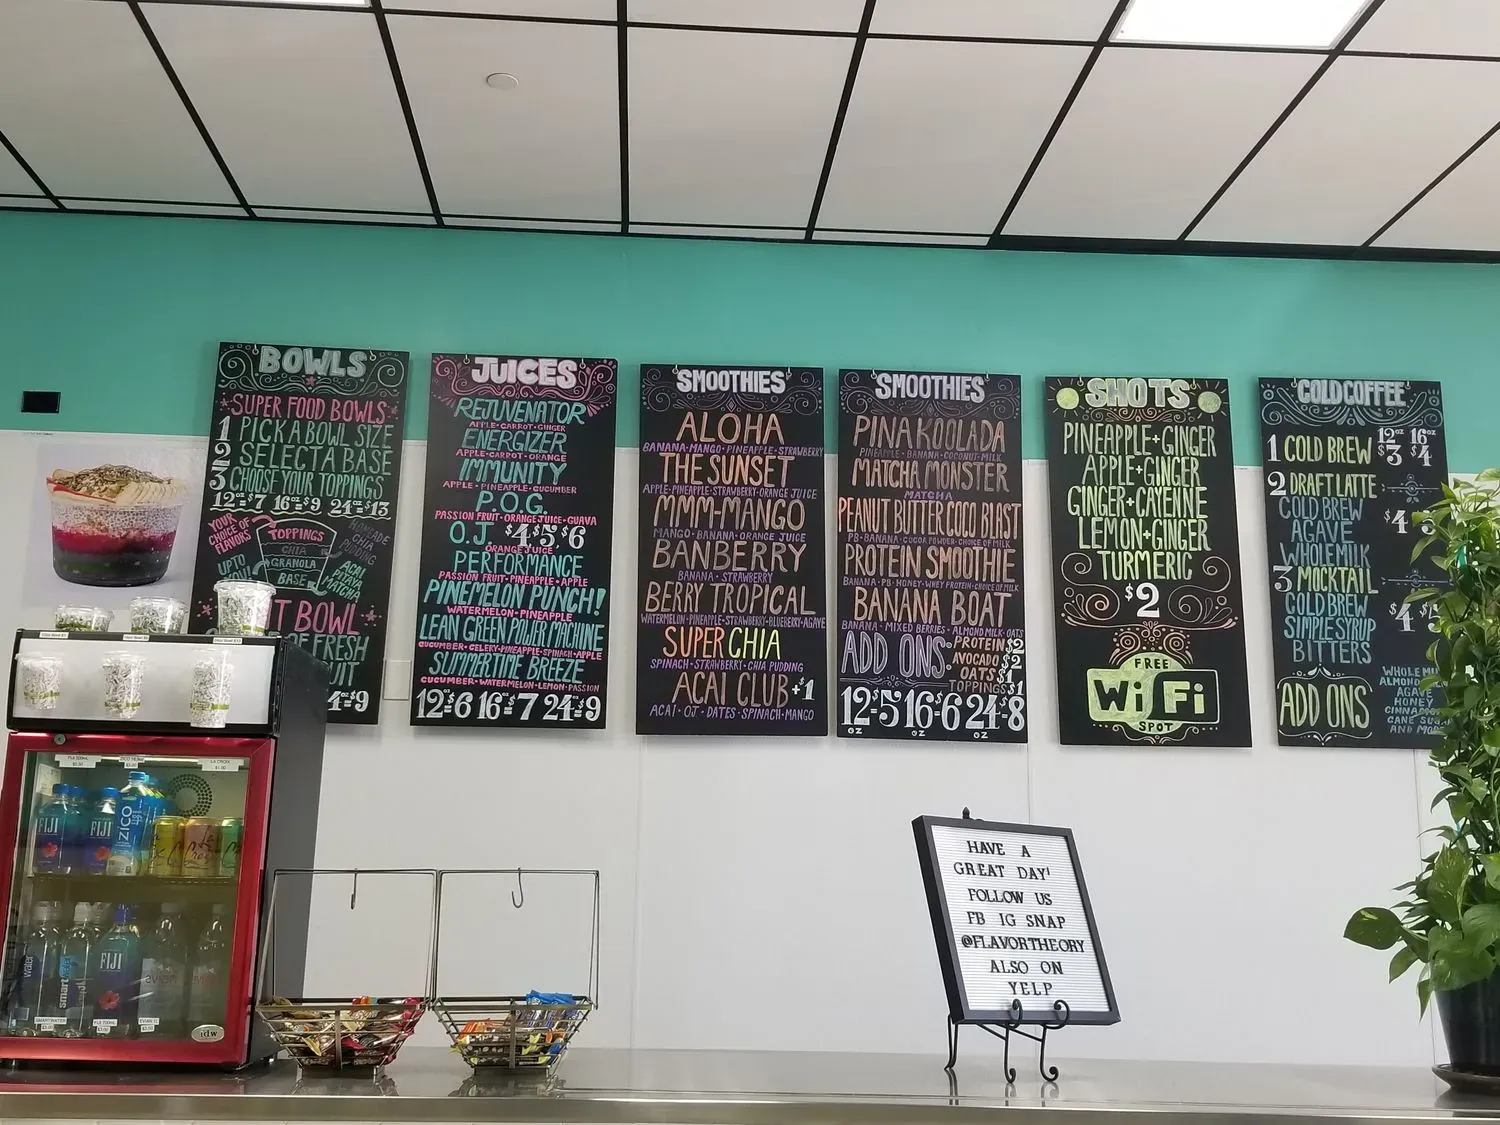 BOWLS
SUPER FOOD BOWLS
1 PICK A BOWL SIZE
2 SELECT A BASE
3 CHOOSE YOUR TOPPINGS
12oz $7 16oz $9 24oz $13
YOUR CHOICE OF FLAVORS
TOPPINGS
CHIA
GRANOLA
BASE
HOMEMADE CHIA PUDDING
UP TO
ACAI
PITAYA
MATCHA
IT BOWL
OF FRESH
UIT
4oz $9
JUICES
REJUVENATOR
APPLE • CARROT • GINGER
ENERGIZER
APPLE • CARROT • ORANGE
IMMUNITY
APPLE • PINEAPPLE • CUCUMBER
P.O.G.
PASSION FRUIT • ORANGE JUICE • GUAVA
O.J. $4 $5 $6
ORANGE JUICE
PERFORMANCE
PASSION FRUIT • PINEAPPLE • APPLE
PINEMELON PUNCH!
WATERMELON • PINEAPPLE
LEAN GREEN POWER MACHINE
CUCUMBER • CELERY • PINEAPPLE • SPINACH • APPLE
SUMMERTIME BREEZE
CUCUMBER • WATERMELON • LEMON • PASSION
12oz $6 16oz $7 24oz $9
SMOOTHIES
ALOHA
BANANA • MANGO • PINEAPPLE • STRAWBERRY
THE SUNSET
APPLE • PINEAPPLE • STRAWBERRY • ORANGE JUICE
MMM-MANGO
MANGO • BANANA • ORANGE JUICE
BANBERRY
BANANA • STRAWBERRY
BERRY TROPICAL
WATERMELON • PINEAPPLE • STRAWBERRY • BLUEBERRY • AGAVE
SUPER CHIA
SPINACH • STRAWBERRY • CHIA PUDDING
ACAI CLUB +$1
ACAI • OJ • DATES • SPINACH • MANGO
SMOOTHIES
PINA KOOLADA
PINEAPPLE • BANANA • COCONUT MILK
MATCHA MONSTER
MATCHA
PEANUT BUTTER COCO BLAST
PB • BANANA • COCOA POWDER • CHOICE OF MILK
PROTEIN SMOOTHIE
BANANA • PB • HONEY • WHEY PROTEIN • CHOICE OF MILK
BANANA BOAT
BANANA • MIXED BERRIES • ALMOND MILK • OATS
ADD ONS:
PROTEIN $2
AVOCADO $2
OATS $1
TOPPINGS $1
12oz-$5 16oz-$6 24oz-$8
SHOTS
PINEAPPLE+GINGER
APPLE+GINGER
GINGER+CAYENNE
LEMON+GINGER
TURMERIC
$2
FREE
WiFi
SPOT
COLD COFFEE
12oz 16oz
1 COLD BREW $3 $4
2 DRAFT LATTE
COLD BREW
AGAVE $4
WHOLE MILK
3 MOCKTAIL
COLD BREW $4 $5
SIMPLE SYRUP
BITTERS
ADD ONS
WHOLE MI
ALMOND
AGAVE
HONEY
CINNAMON
CANE SUGA
AND MO
FIJI
FIJI
ZICO
LA CROIX
smartwater
FIJI
evian
SMARTWATER
idw
HAVE A
GREAT DAY!
FOLLOW US
FB IG SNAP
@FLAVORTHEORY
ALSO ON
YELP